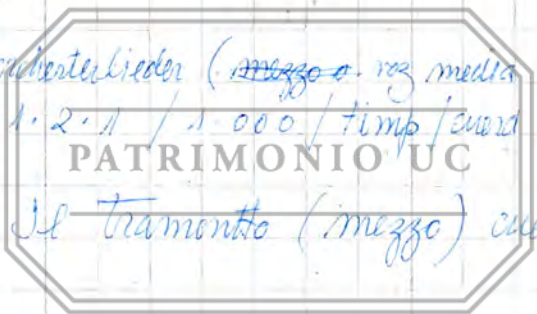 orchesterlieder (mezzo o voz media
1. 2. 1 / 1. 000 / timp / cuerd
PATRIMONIO UC
Il Tramontto (mezzo) cue